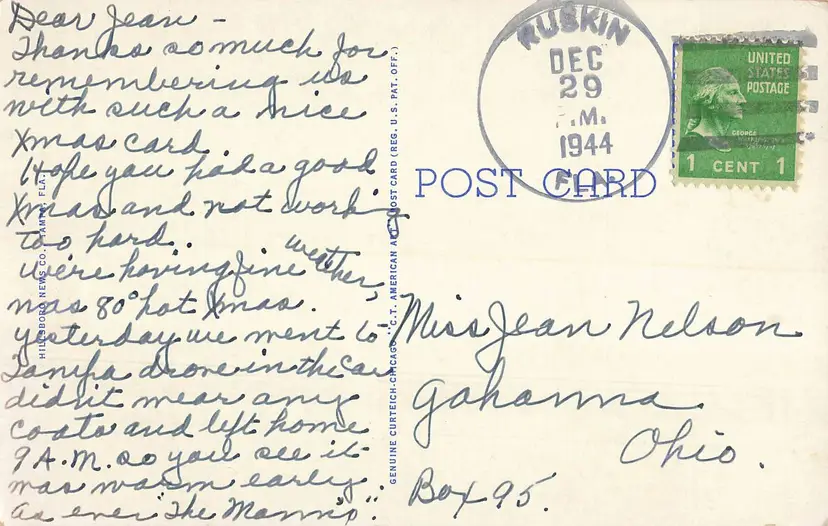 Dear Jean –
Thanks so much for
remembering us
with such a nice
Xmas card.
Hope you had a good
Xmas and not working
too hard..
We're having fine weather,
was 80° hot Xmas.
yesterday we went to
Tampa drove in the car
didn't wear any
coats and left home
9 A.M. so you see it
was warm early.
As ever "The Mann's".
HILLSBORO NEWS CO., TAMPA, FLA.
GENUINE CURTEICH-CHICAGO "C.T. AMERICAN ART" POST CARD (REG. U.S. PAT. OFF.)
RUSKIN
DEC
29
P.M.
1944
FLA.
UNITED
STATES
POSTAGE
GEORGE
1 CENT 1
POST CARD
Miss Jean Nelson
Gahanna
Ohio.
Box 95.